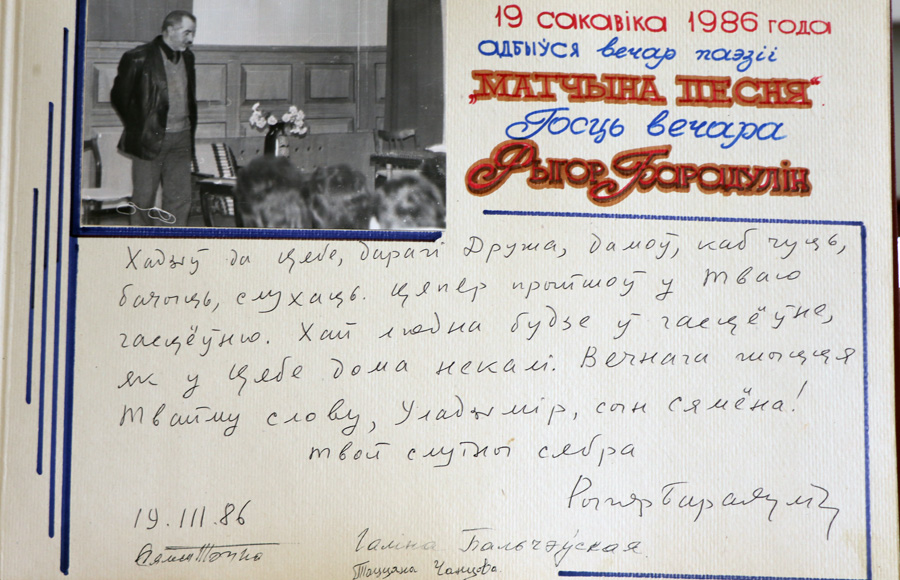 19 сакавіка 1986 года
адбыўся вечар паэзіі
„МАТЧЫНА ПЕСНЯ“
Госць вечара
Рыгор Барадулін
Хадзіў да Цябе, дарагі Дружа, дамоў, каб чуць,
бачыць, слухаць. Цяпер прыйшоў у Тваю
гасцёўню. Хай людна будзе ў гасцёўне,
як у Цябе дома некалі. Вечнага жыцця
Твайму слову, Уладзімір, сын Сямёна!
Твой смутны сябра
Рыгор Барадулін
19.III.86
Галіна Бальчэўская
Таццяна Чанцова